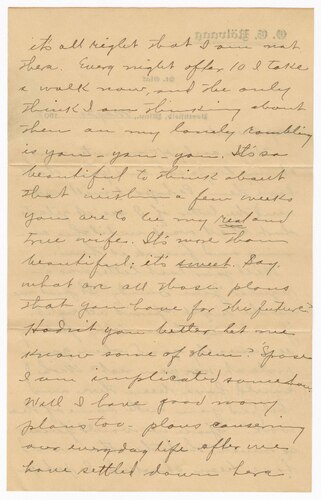 it's all right that I am not
there. Every night after 10 I take
a walk now, and the only
think I am thinking about
then on my lonely rambling
is you – you – you. It's so
beautiful to think about
that within a few weeks
you are to be my real and
true wife. It's more than
beautiful; it's sweet. Say
what are all those plans
that you have for the future?
Hadn't you better let me
know some of them? 'Spose
I am implicated somehow.
Well I have good many
plans too – plans concerning
our everyday life after we
have settled down here